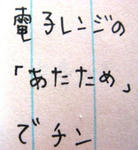 電子レンジの
「あたため」
でチン